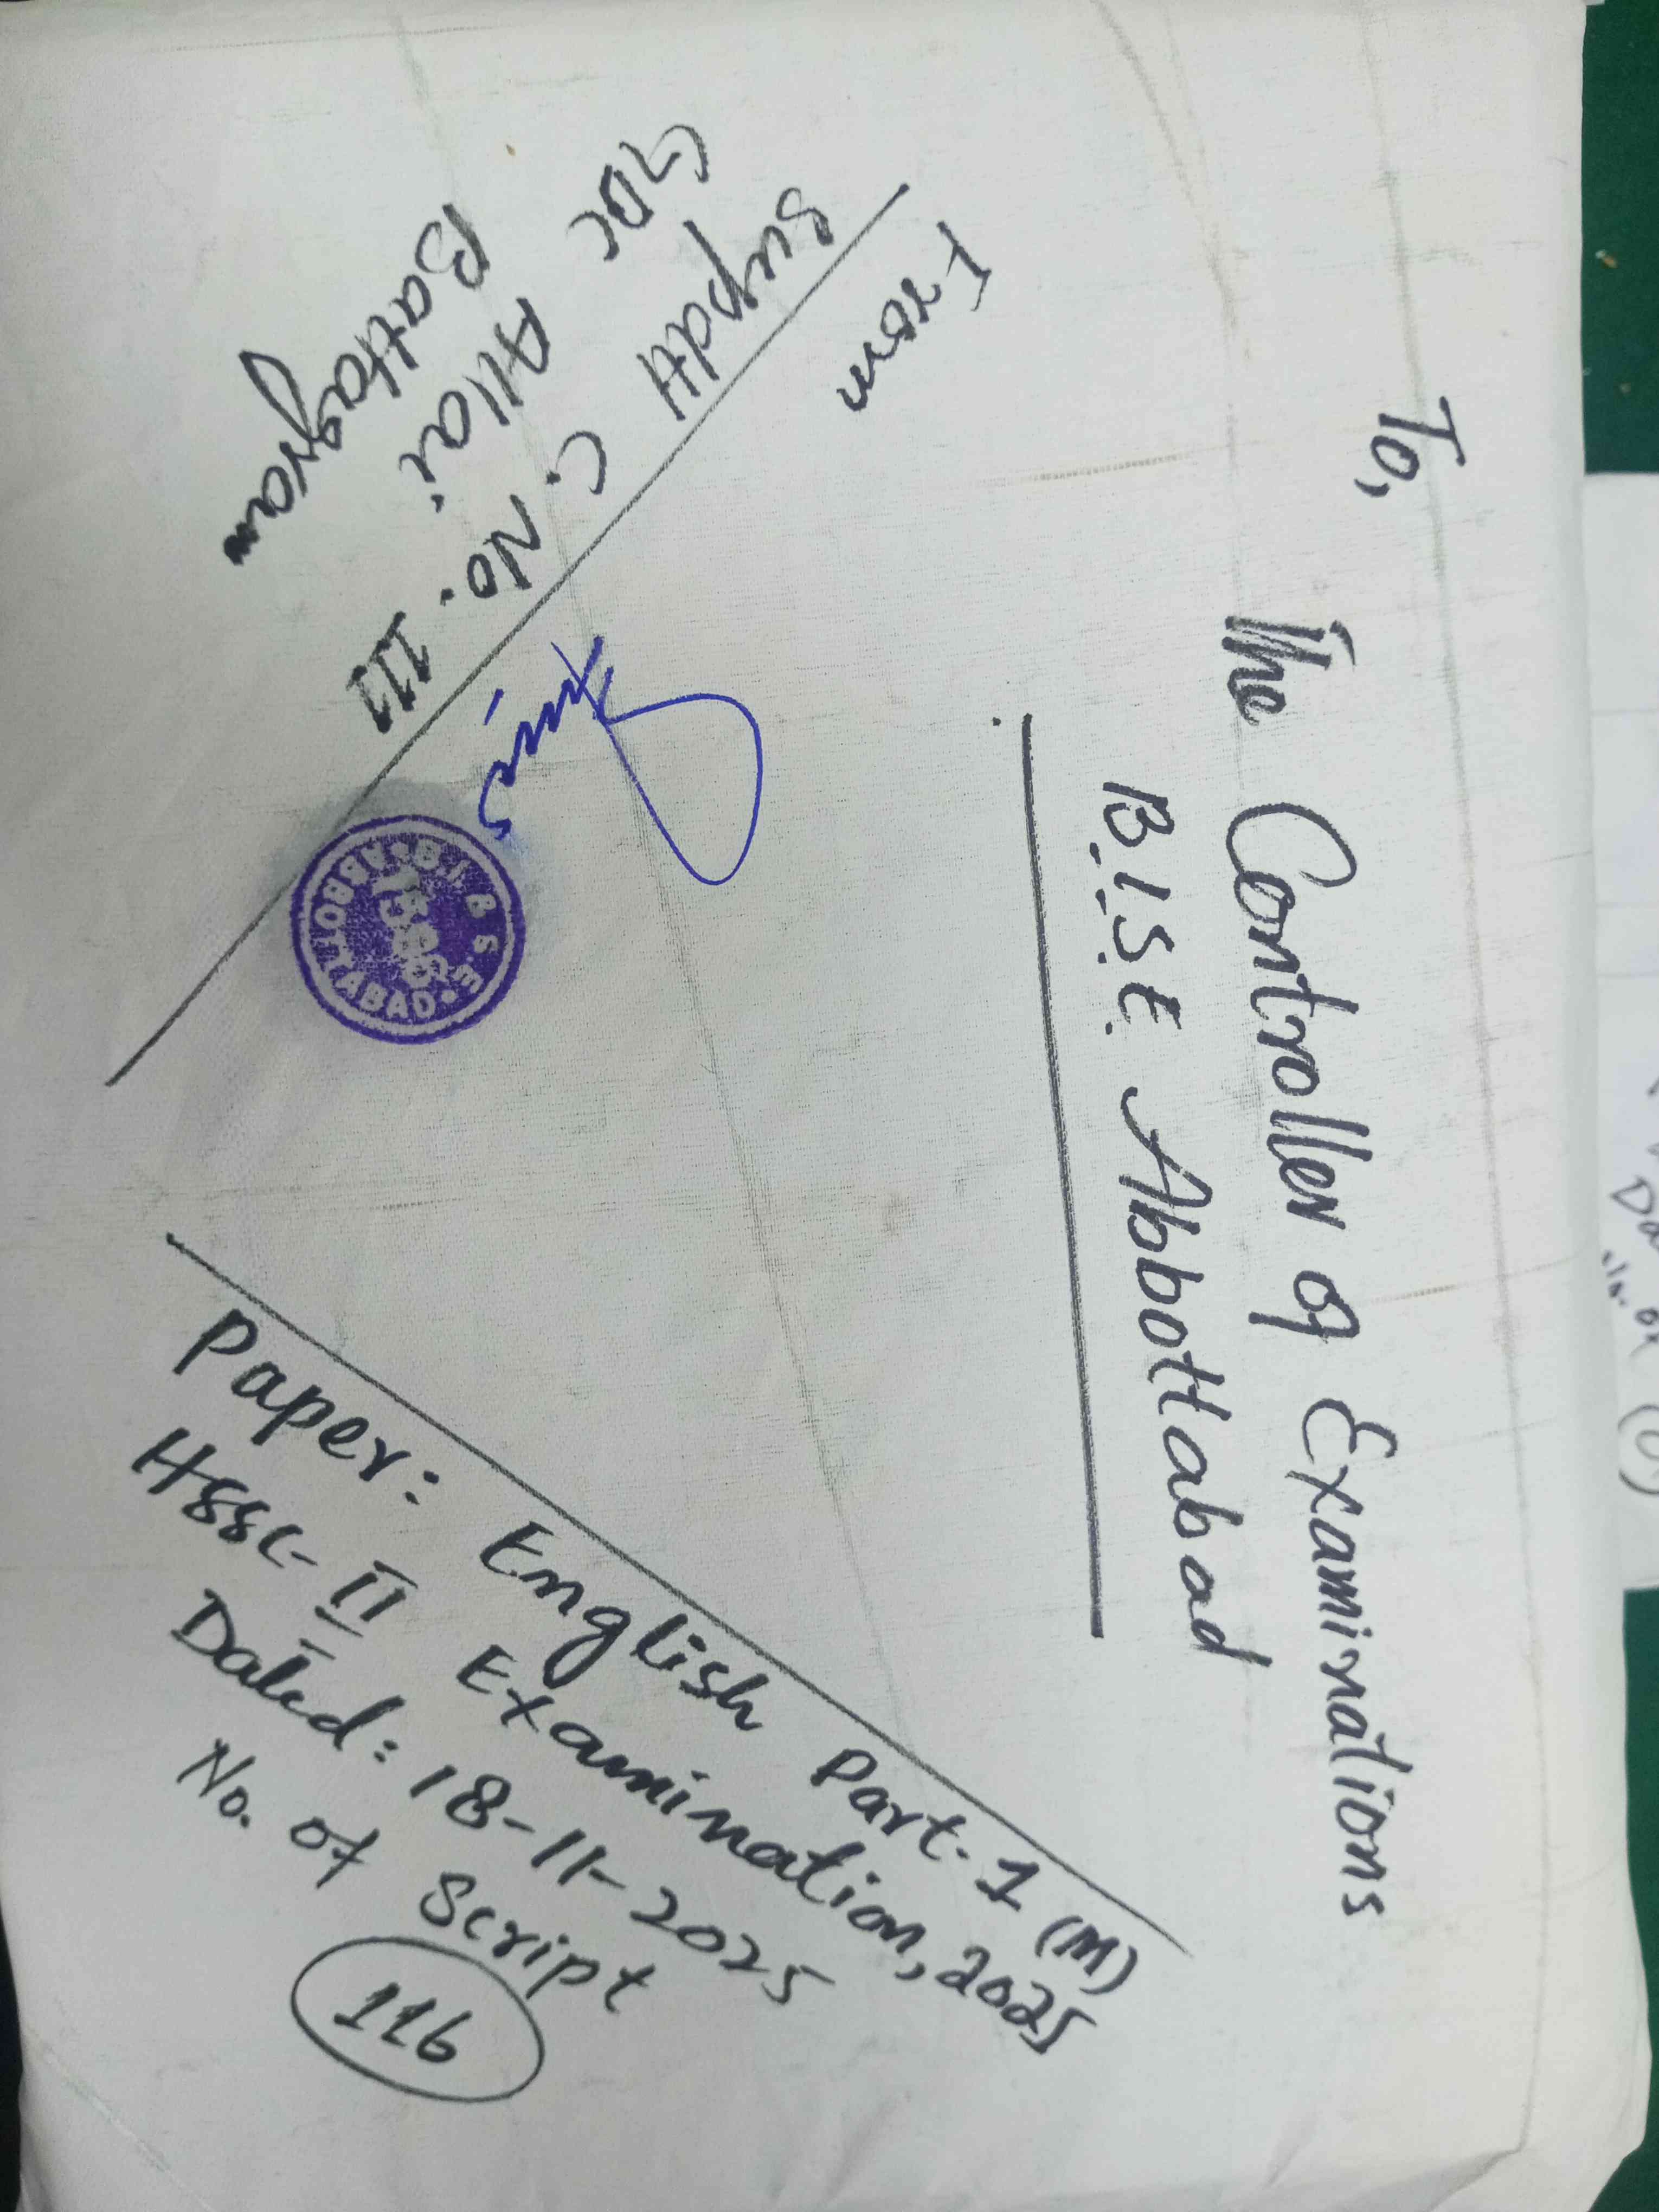 To,
The Controller of Examinations
B.I.S.E. Abbottabad
From
Supdtt C. No. 111
GDC Allai
Battagram
B.I.S.E. ABBOTTABAD
Paper: English Part-1 (M)
HSSC-II Examination, 2025
Dated: 18-11-2025
No. of Script
116